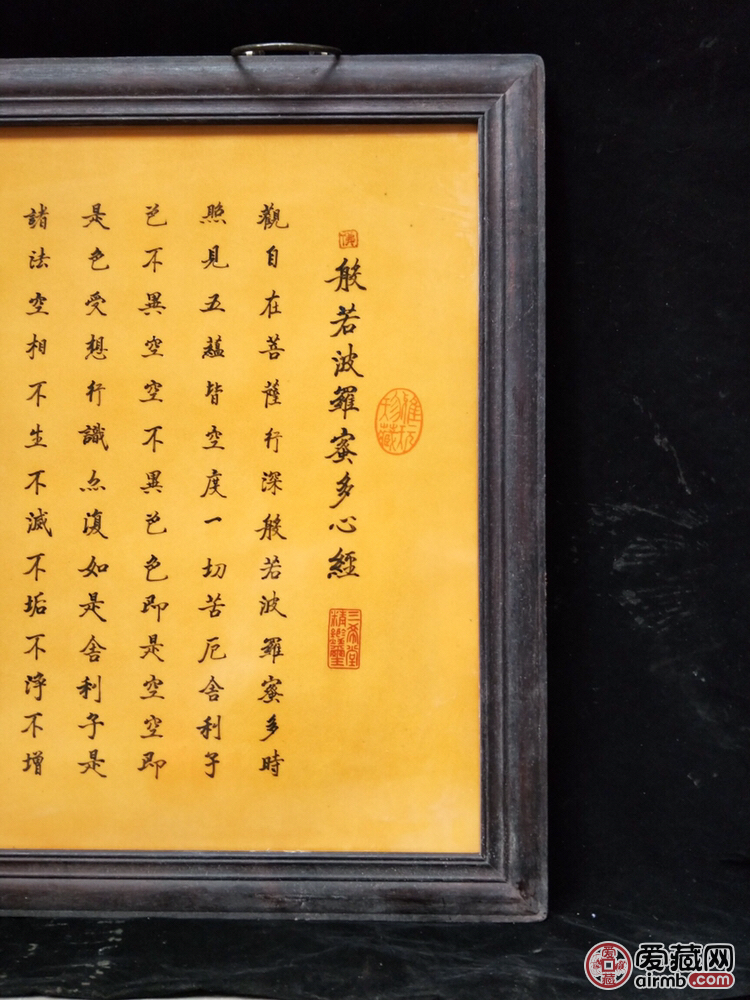 般若波羅蜜多心經
觀自在菩薩行深般若波羅蜜多時
照見五蘊皆空度一切苦厄舍利子
色不異空空不異色色即是空空即
是色受想行識亦復如是舍利子是
諸法空相不生不滅不垢不淨不增
三希堂
精鑑璽
爱藏网
airmb.com